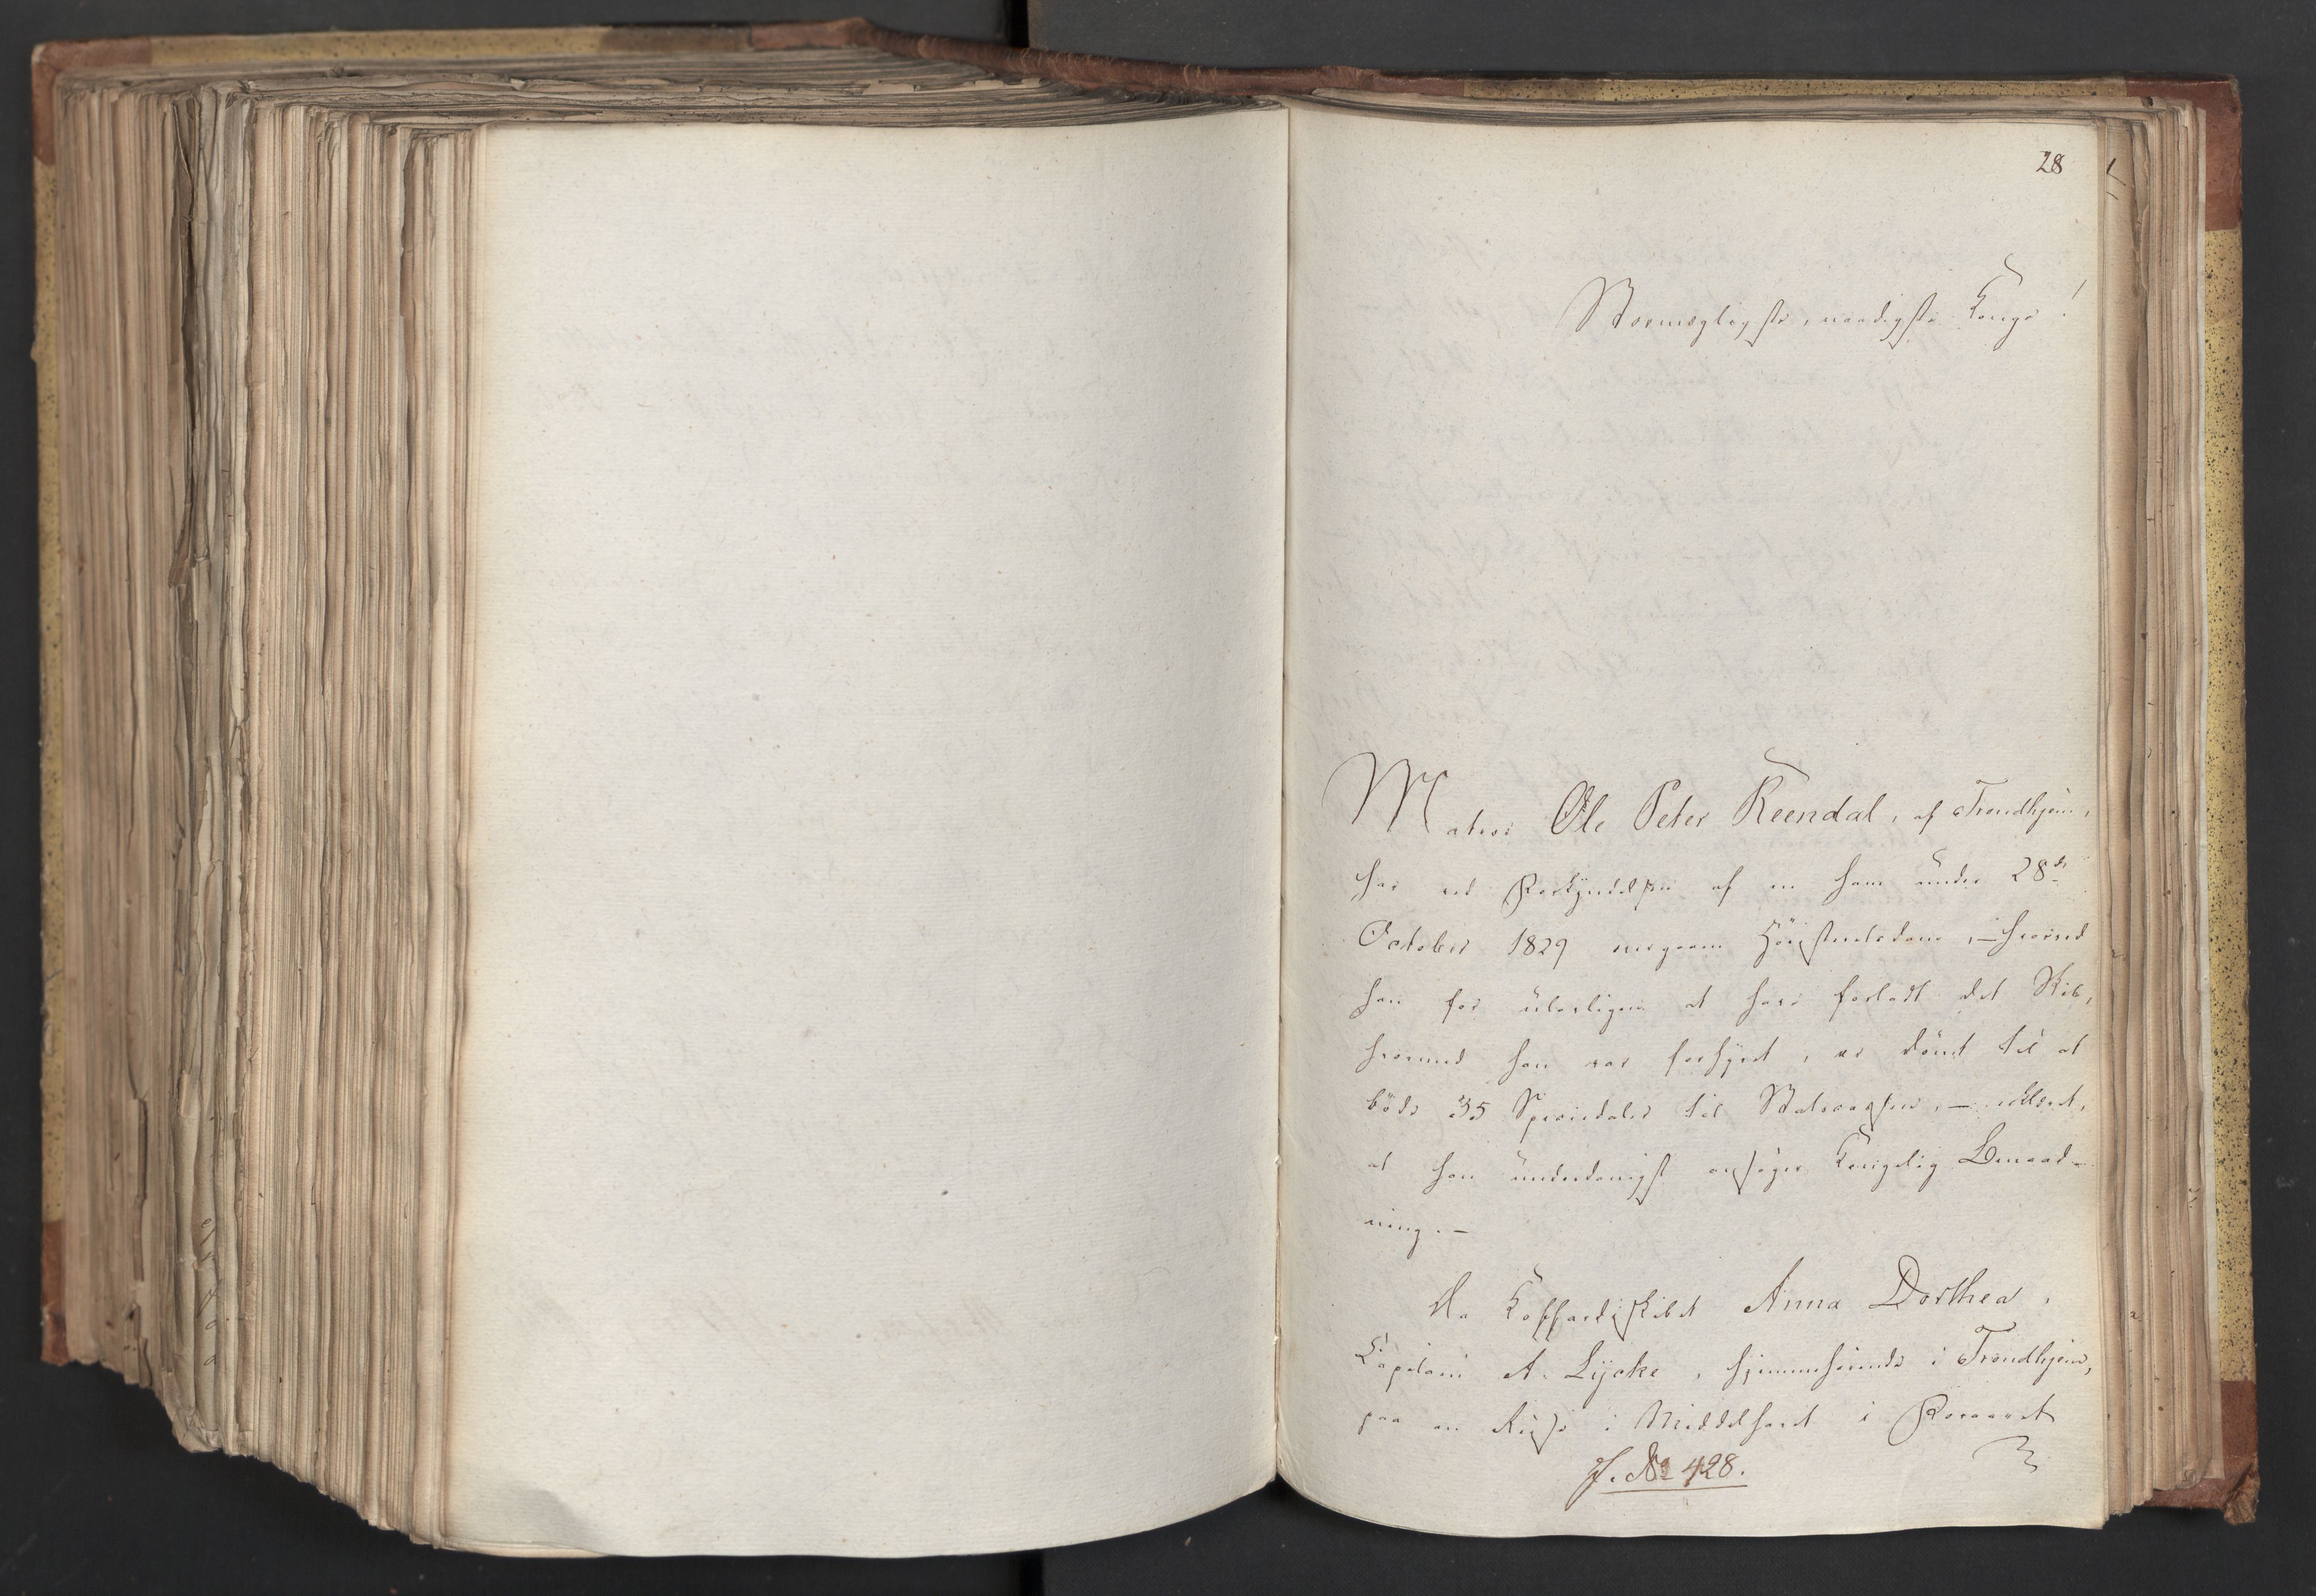 28
Stormægtigste, naadigste Konge!
Matros Ole Peter Reendal, af Trondhjem,
har ved Forkyndelsen af en ham under 28de
October 1829 overgaaen Høiesteretsdom, – hvorved
han for ulovligen at have forladt det Skib,
hvormed han var forhyret, er dömt til at
böde 35 Speciedaler til Statscassen, – erklæret,
at han underdanigst ansøger Kongelig Benaad-
ning. –
Da Koffardiskibet Anna Dorthea,
Capitain A. Lycke, hjemmehørende i Trondhjem,
paa en Reise i Middelhavet i Foraaret
J. No 428.